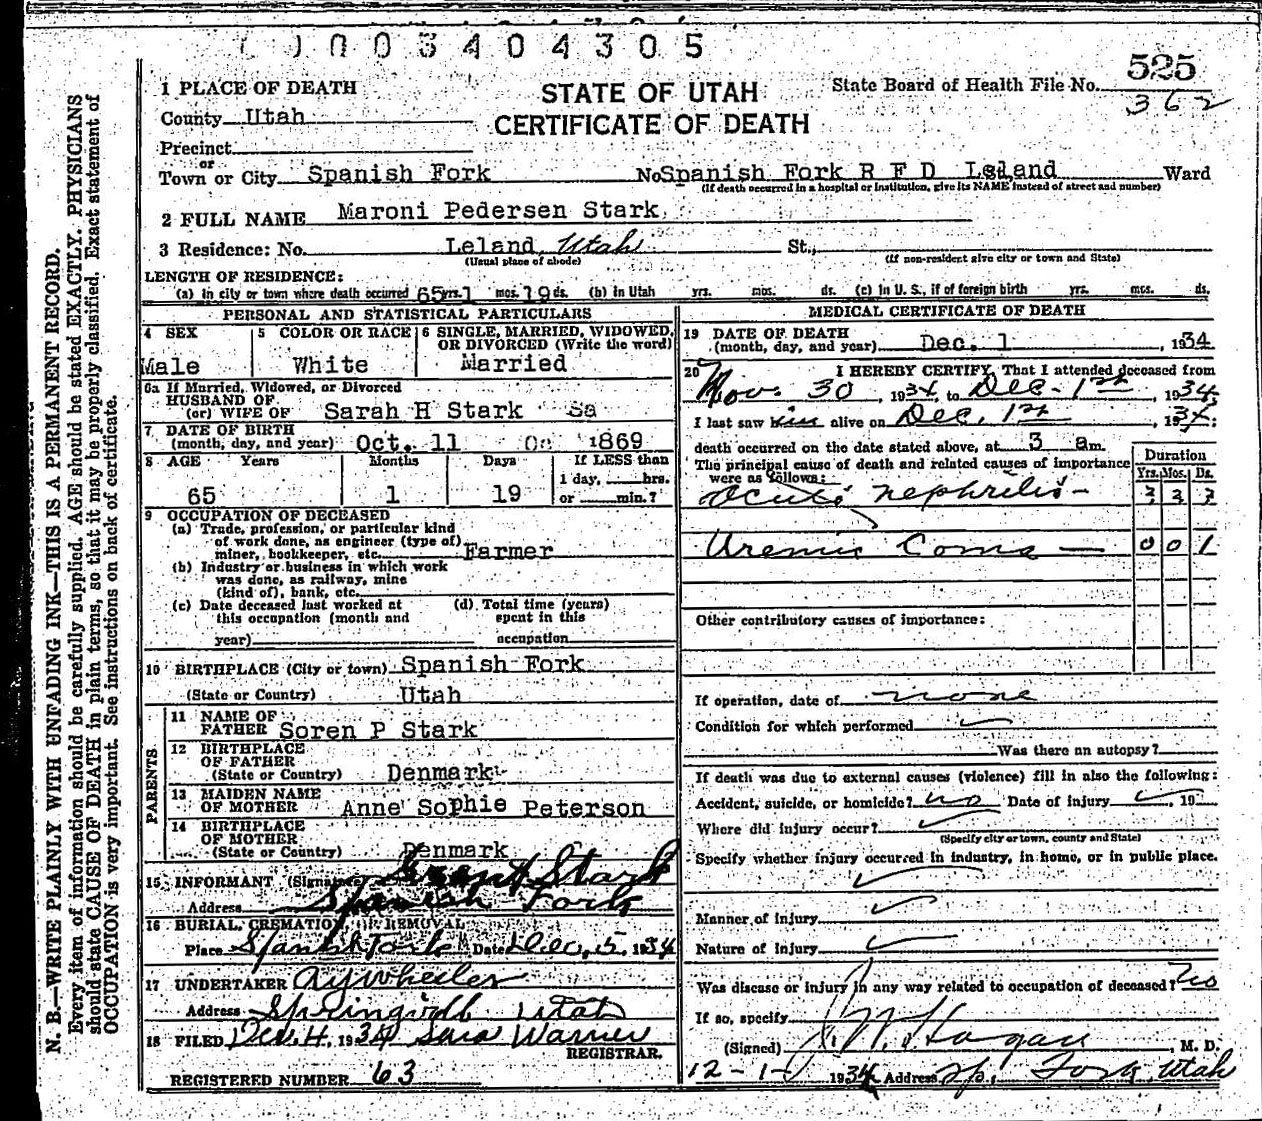 0003404305
525
1 PLACE OF DEATH
STATE OF UTAH
State Board of Health File No.
362
County Utah
CERTIFICATE OF DEATH
Precinct
or
Town or City Spanish Fork No Spanish Fork R F D Leland Ward
(If death occurred in a hospital or institution, give its NAME instead of street and number)
2 FULL NAME Maroni Pedersen Stark
3 Residence: No. Leland, Utah St.,
(Usual place of abode) (If non-resident give city or town and State)
LENGTH OF RESIDENCE:
(a) In city or town where death occurred 65 yrs. 1 mos. 19 ds. (b) In Utah yrs. mos. ds. (c) In U. S., if of foreign birth yrs. mos. ds.
PERSONAL AND STATISTICAL PARTICULARS
4 SEX
Male
5 COLOR OR RACE
White
6 SINGLE, MARRIED, WIDOWED, OR DIVORCED (Write the word)
Married
6a If Married, Widowed, or Divorced
HUSBAND OF
(or) WIFE OF Sarah H Stark Sa
7 DATE OF BIRTH
(month, day, and year) Oct. 11 Oc 1869
8 AGE Years Months Days If LESS than
1 day, hrs.
65 1 19 or min.?
9 OCCUPATION OF DECEASED
(a) Trade, profession, or particular kind
of work done, as engineer (type of)
miner, bookkeeper, etc. Farmer
(b) Industry or business in which work
was done, as railway, mine
(kind of), bank, etc.
(c) Date deceased last worked at
this occupation (month and
year)
(d) Total time (years)
spent in this
occupation
10 BIRTHPLACE (City or town) Spanish Fork
(State or Country) Utah
PARENTS
11 NAME OF
FATHER Soren P Stark
12 BIRTHPLACE
OF FATHER
(State or Country) Denmark
13 MAIDEN NAME
OF MOTHER Anne Sophie Peterson
14 BIRTHPLACE
OF MOTHER
(State or Country) Denmark
15 INFORMANT (Signature) Grant Stark
Address Spanish Fork
16 BURIAL, CREMATION, OR REMOVAL
Place Spanish Fork Date Dec. 5. 1934
17 UNDERTAKER A Y Wheeler
Address Springville Utah
18 FILED Dec. 4. 1934 Sara Warner
REGISTRAR.
REGISTERED NUMBER 63
MEDICAL CERTIFICATE OF DEATH
19 DATE OF DEATH
(month, day, and year) Dec. 1, 1934
20 I HEREBY CERTIFY, That I attended deceased from
Nov. 30, 1934 to Dec. 1st, 1934.
I last saw him alive on Dec. 1st, 1934.
death occurred on the date stated above, at 3 am.
The principal cause of death and related causes of importance
were as follows:
Duration
Yrs. Mos. Ds.
Acute nephritis - ? ? ?
Uremic Coma - 0 0 1
Other contributory causes of importance:
If operation, date of none
Condition for which performed
Was there an autopsy?
If death was due to external causes (violence) fill in also the following:
Accident, suicide, or homicide? no Date of injury 19
Where did injury occur?
(Specify city or town, county and State)
Specify whether injury occurred in industry, in home, or in public place.
Manner of injury
Nature of injury
Was disease or injury in any way related to occupation of deceased? No
If so, specify
(Signed) J. W. Hagan, M. D.
12-1- 1934 Address Sp. Fork, Utah
N. B.—WRITE PLAINLY WITH UNFADING INK—THIS IS A PERMANENT RECORD.
Every item of information should be carefully supplied. AGE should be stated EXACTLY. PHYSICIANS
should state CAUSE OF DEATH in plain terms, so that it may be properly classified. Exact statement of
OCCUPATION is very important. See instructions on back of certificate.